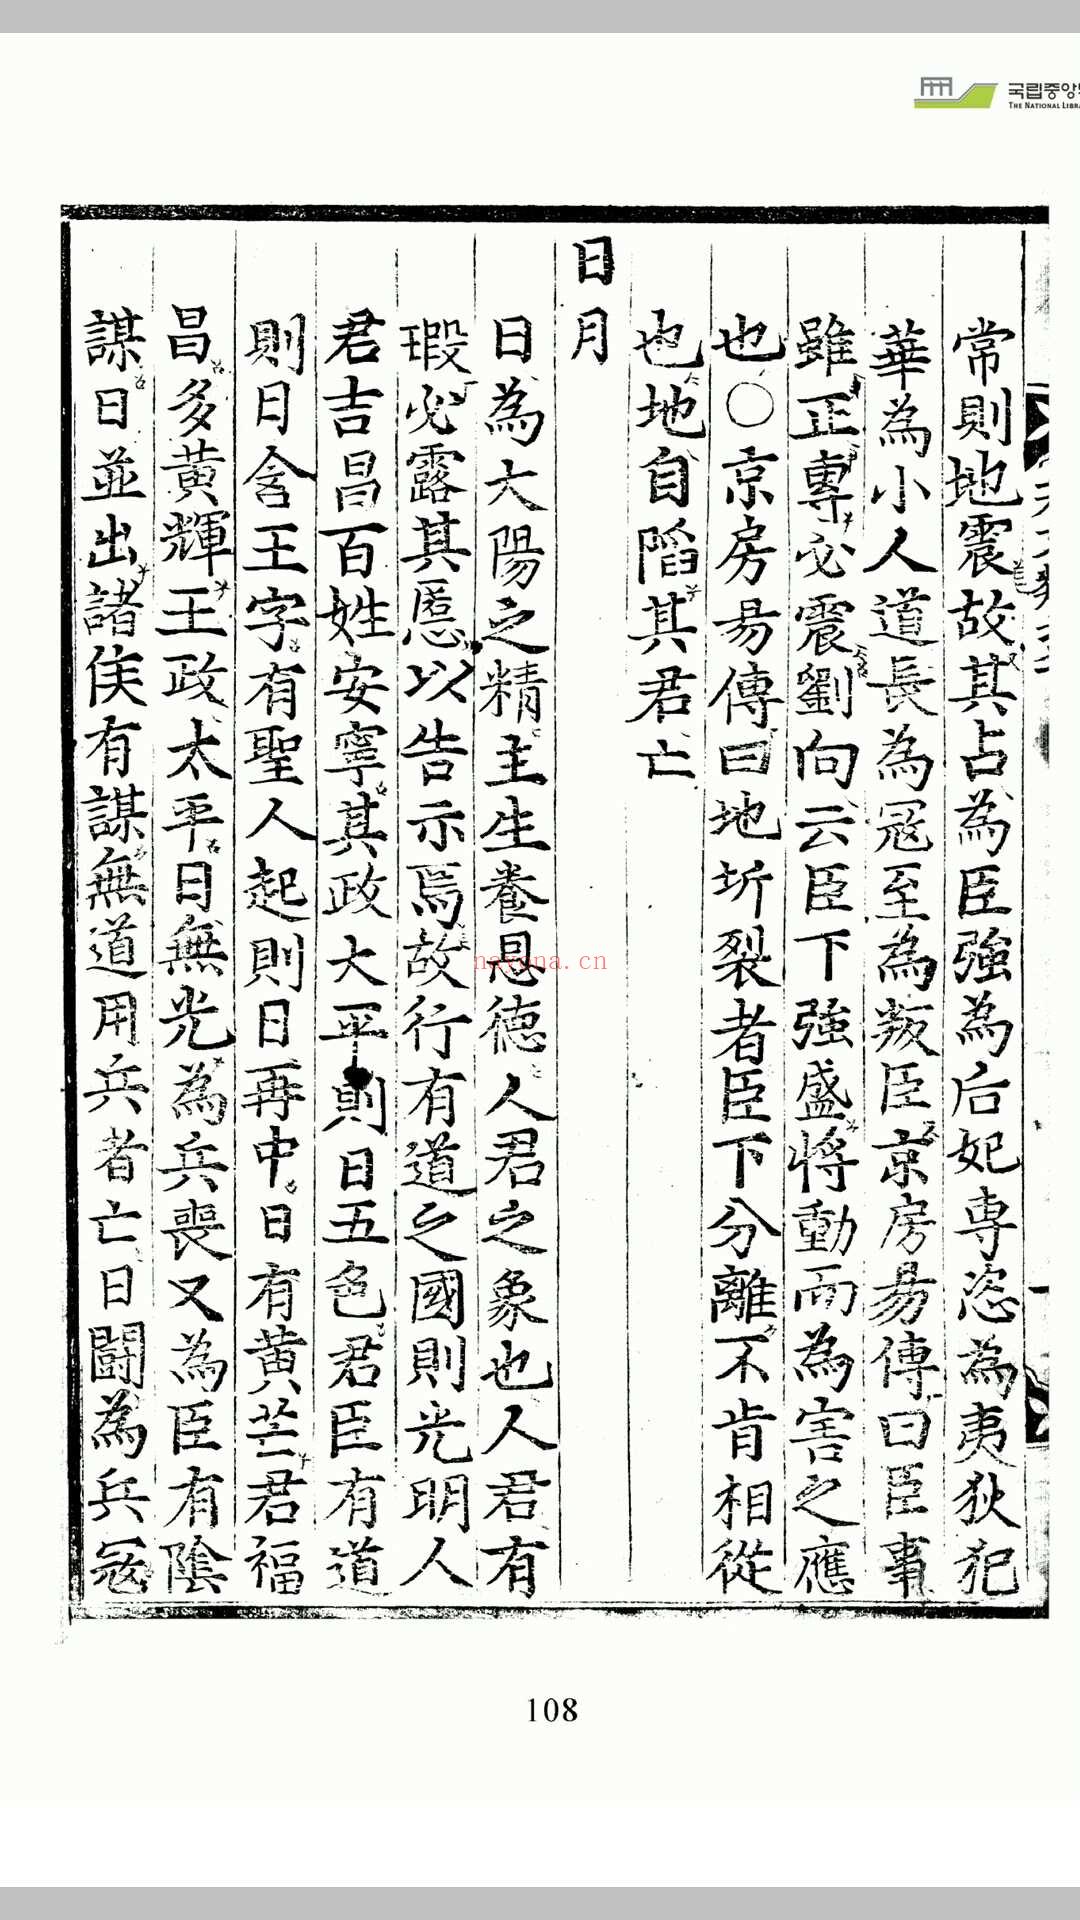 국립중앙
THE NATIONAL LIBRA
常則地震故其占為臣強為后妃専恣為夷狄犯
華為小人道長為冦至為叛臣京房昜傳曰臣事
雖正專必震劉向云臣下強盛将動而為害之應
也〇京房昜傳曰地坼裂者臣下分離不肯相從
也地自陷其君亡
日月
日為大陽之精主生養恩德人君之象也人君有
瑕必露其慝以告示焉故行有道之國則光明人
君吉昌百姓安寧其政大平則日五色君臣有道
則日含王字有聖人起則日再中日有黄芒君福
昌多黄輝王政太平日無光為兵喪又為臣有陰
謀日並出諸侯有謀無道用兵者亡日鬪為兵冦
nayona.cn
108